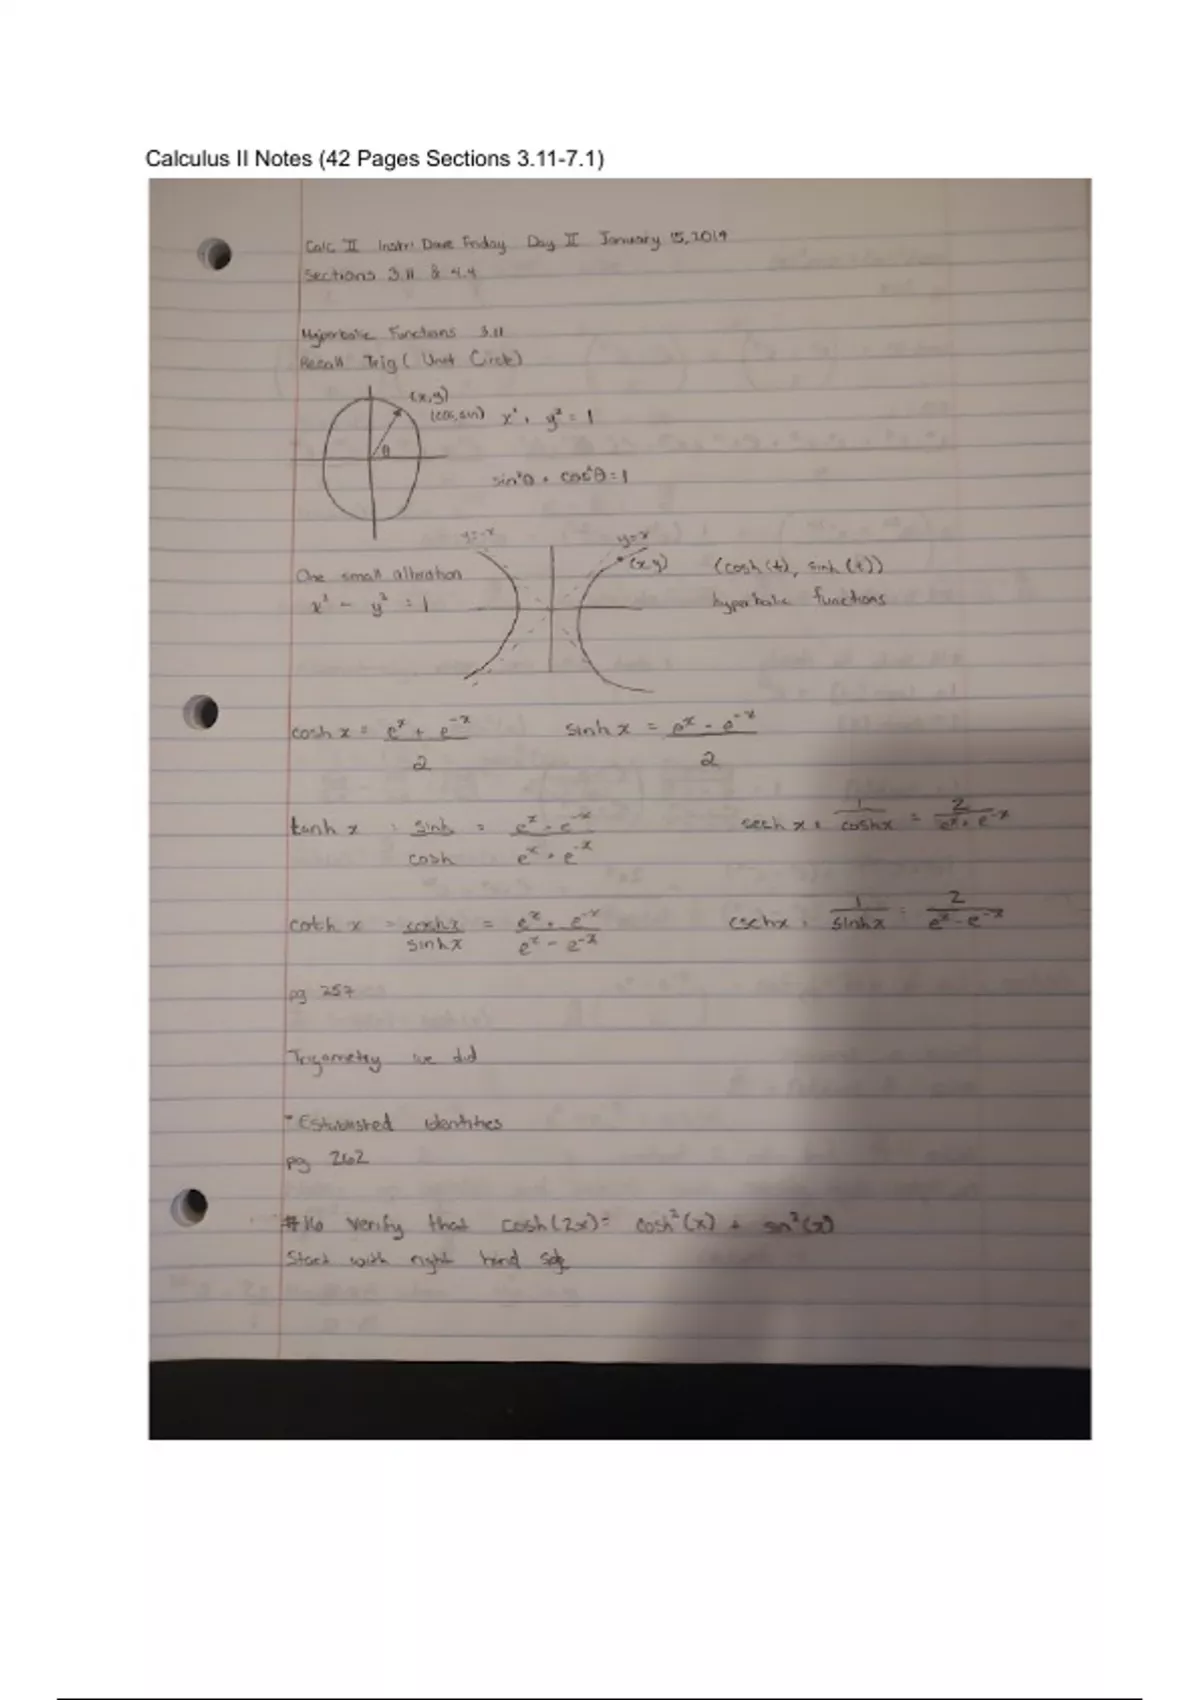 Calculus II Notes (42 Pages Sections 3.11-7.1)
Calc II Instr: Dave Friday Day II January 15, 2019
Sections 3.11 & 4.4
Hyperbolic Functions 3.11
Recall Trig ( Unit Circle)
(x,y)
(cos, sin) x² + y² = 1
θ
sin²θ + cos²θ = 1
y=-x y=x
One small alteration (x,y) (cosh(t), sinh(t))
x² - y² = 1 hyperbolic functions
cosh x = e^x + e^-x / 2 sinh x = e^x - e^-x / 2
tanh x = sinh / cosh = e^x - e^-x / e^x + e^-x sech x = 1 / coshx = 2 / e^x + e^-x
coth x = coshx / sinhx = e^x + e^-x / e^x - e^-x cschx = 1 / sinhx = 2 / e^x - e^-x
pg 257
Trigametry we did
Established identities
pg 262
#16 Verify that cosh(2x) = cosh²(x) + sin²(x)
Start with right hand side